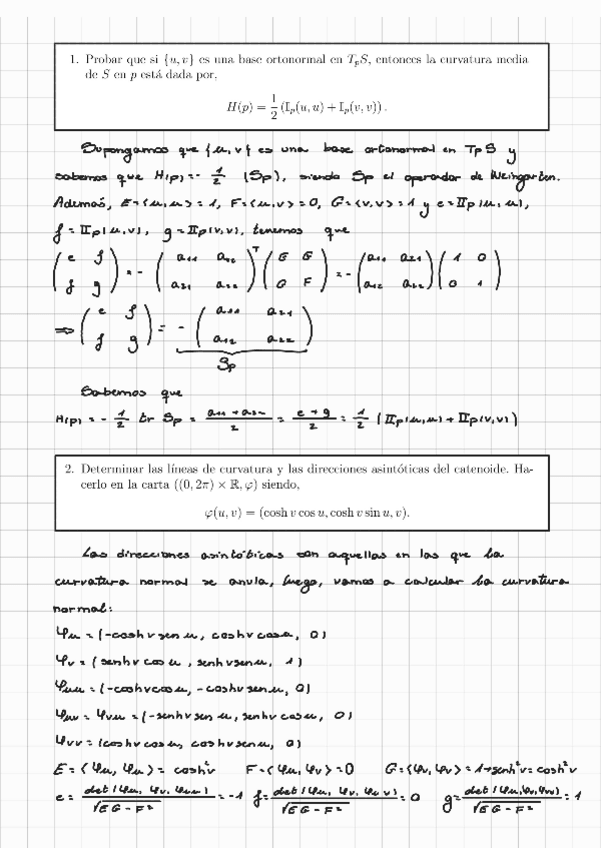 1. Probar que si {u, v} es una base ortonormal en TₚS, entonces la curvatura media
de S en p está dada por,
H(p) = 1/2 (𝕀ₚ(u, u) + 𝕀ₚ(v, v)).
Supongamos que {u, v} es una base ortonormal en TpS y
sabemos que H(p) = - 1/2 (Sp), siendo Sp el operador de Weingarten.
Además, E = <u, u> = 1, F = <u, v> = 0, G = <v, v> = 1 y e = IIp(u, u),
f = IIp(u, v), g = IIp(v, v), tenemos que
( e f ; f g ) = - ( a₁₁ a₁₂ ; a₂₁ a₂₂ )ᵀ ( E G ; G F ) = - ( a₁₁ a₂₁ ; a₁₂ a₂₂ ) ( 1 0 ; 0 1 )
⇒ ( e f ; f g ) = - ( a₁₁ a₂₁ ; a₁₂ a₂₂ )
Sp
Sabemos que
H(p) = - 1/2 tr Sp = (a₁₁ + a₂₂)/2 = (e + g)/2 = 1/2 (IIp(u, u) + IIp(v, v))
2. Determinar las líneas de curvatura y las direcciones asintóticas del catenoide. Ha-
cerlo en la carta ((0, 2π) × ℝ, φ) siendo,
φ(u, v) = (cosh v cos u, cosh v sin u, v).
Las direcciones asintóticas son aquellas en las que la
curvatura normal se anula, luego, vamos a calcular la curvatura
normal:
φu = (-cosh v sen u, cosh v cos u, 0)
φv = (senh v cos u, senh v sen u, 1)
φuu = (-cosh v cos u, -cosh v sen u, 0)
φuv = φvu = (-senh v sen u, senh v cos u, 0)
φvv = (cosh v cos u, cosh v sen u, 0)
E = <φu, φu> = cosh²v F = <φu, φv> = 0 G = <φv, φv> = 1 + senh²v = cosh²v
e = det(φu, φv, φuu)/√(EG - F²) = -1 f = det(φu, φv, φuv)/√(EG - F²) = 0 g = det(φu, φv, φvv)/√(EG - F²) = 1